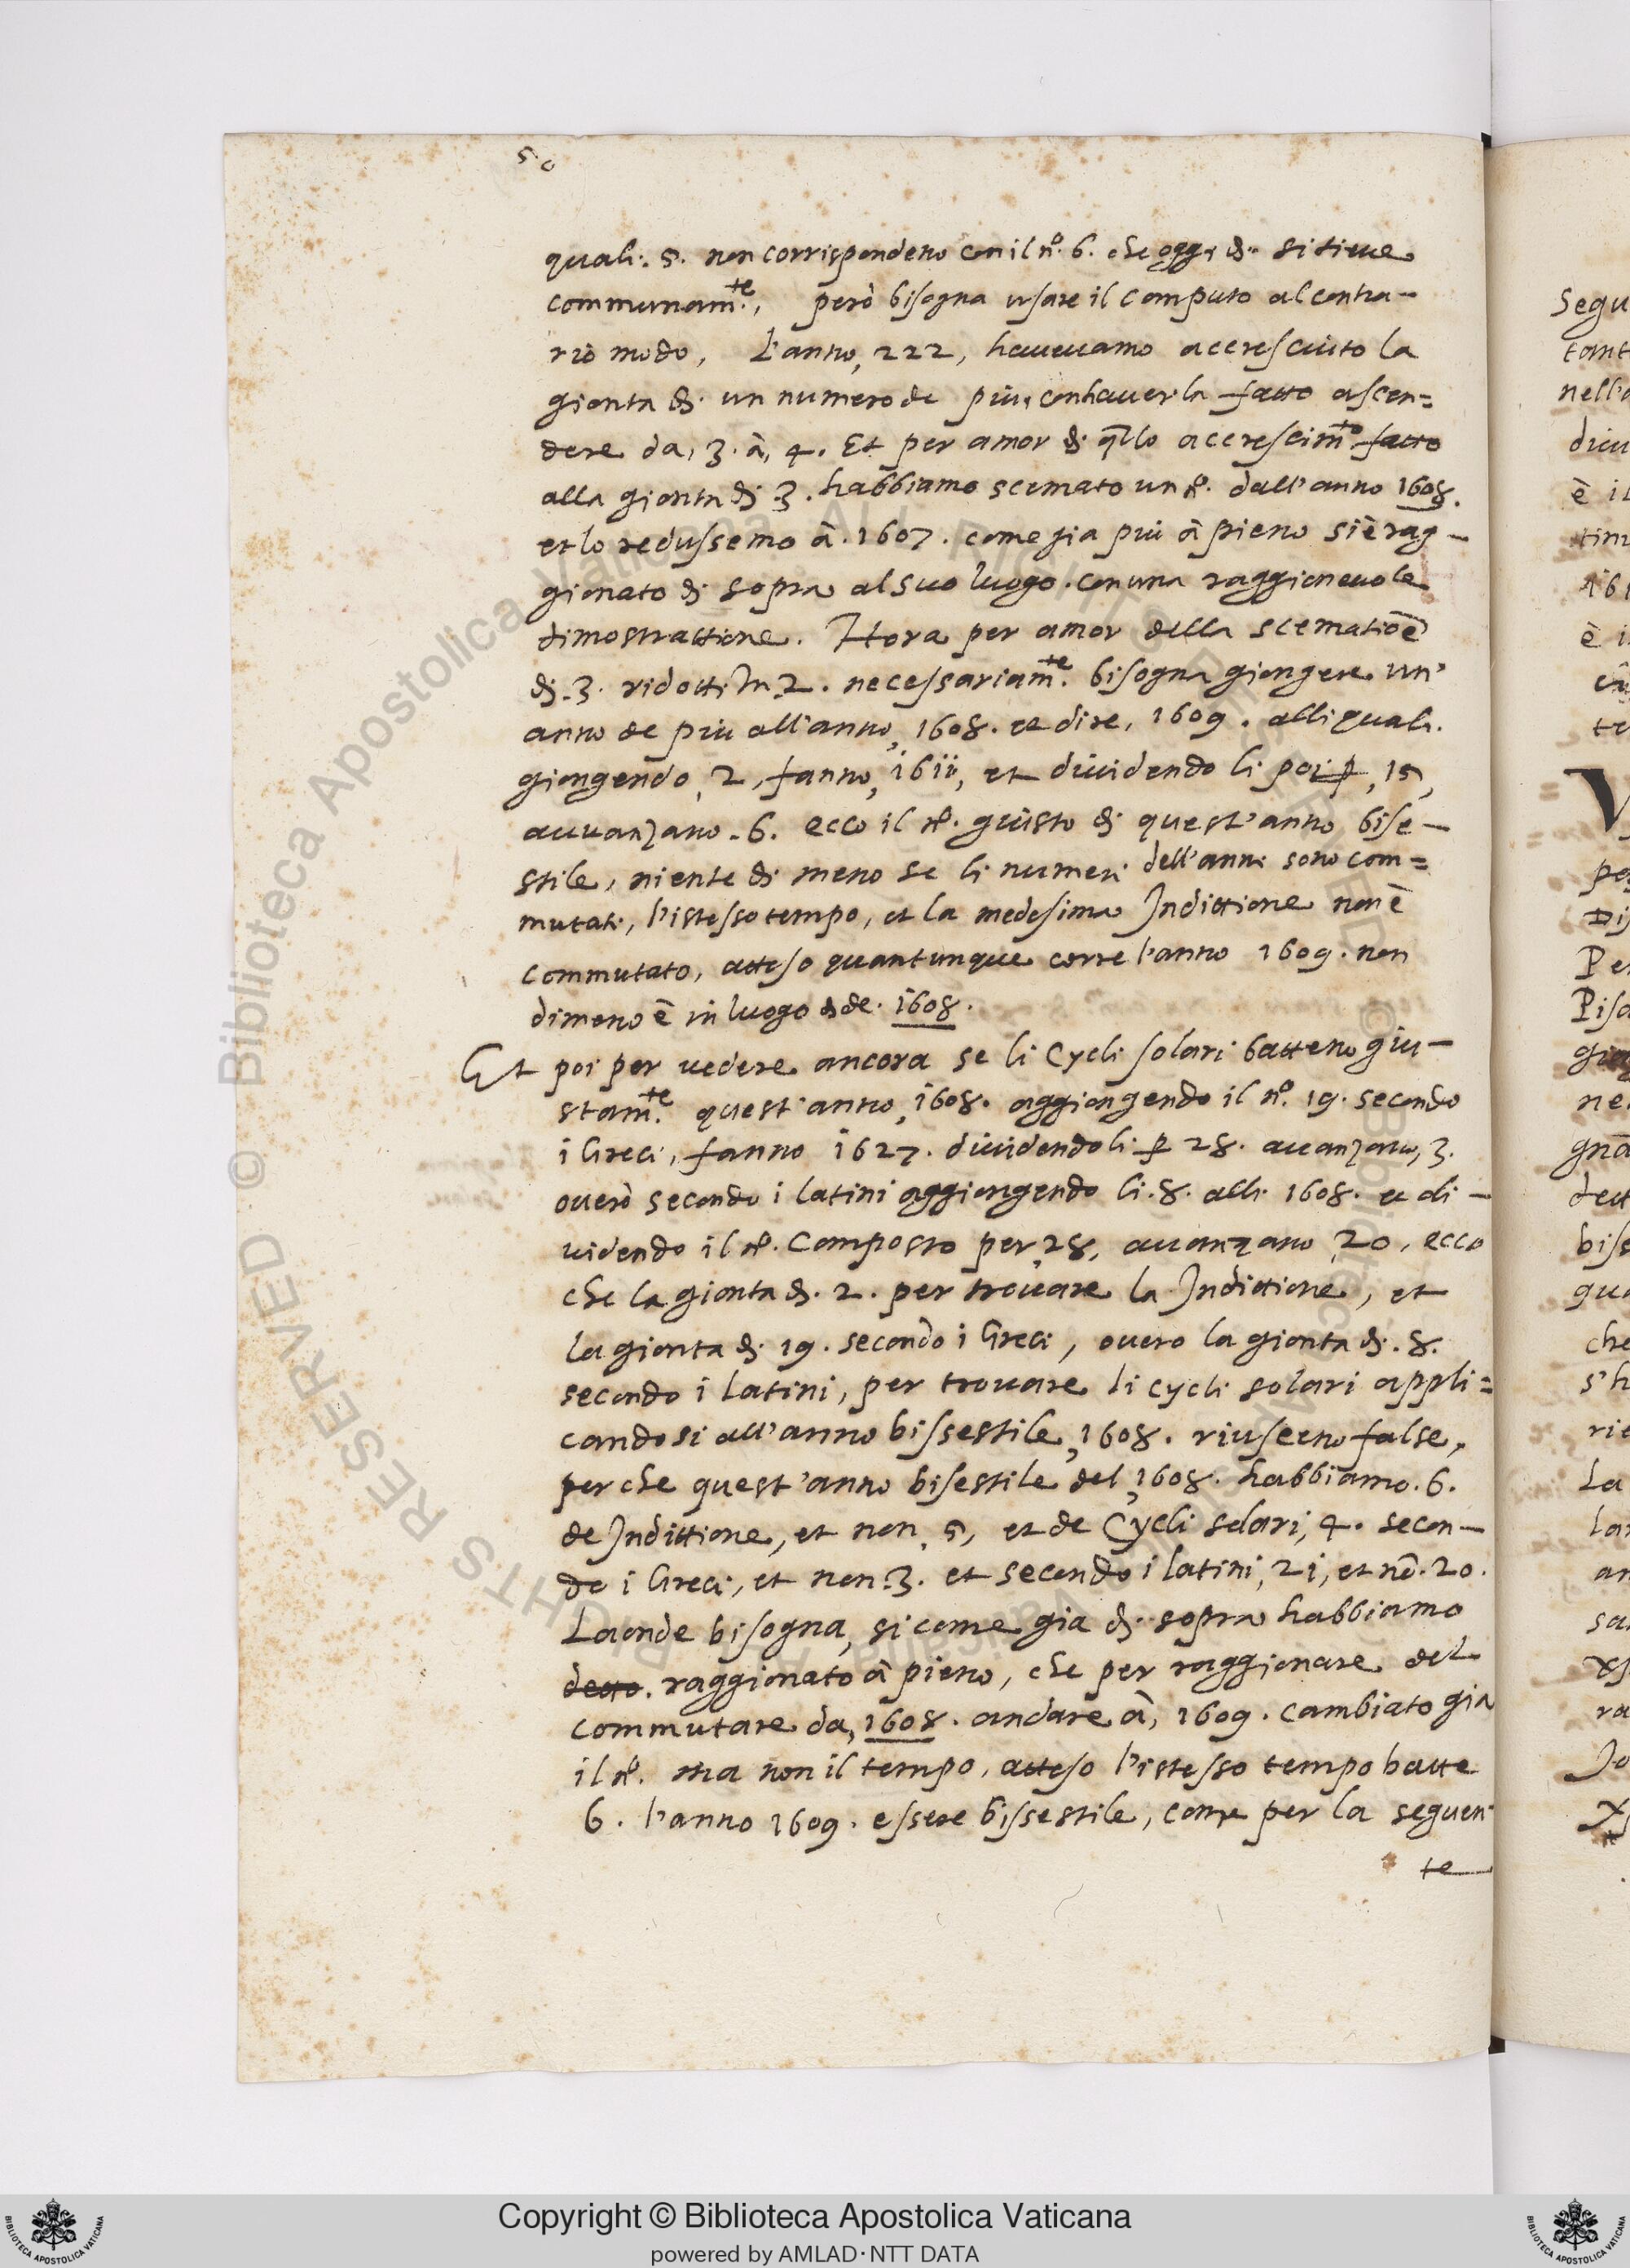 50
quali. 5. non corrispondeno con il nº. 6. che oggi dì si tiene
communam.te, però bisogna usare il computo al contra-
rio modo, L'anno, 222, havevamo accresciuto la
gionta di un numero de più, con haverla fatto ascen=
dere da, 3. à, 4. Et per amor di q̃llo accrescim.to fatto
alla gionta di 3. habbiamo scemato un nº. dall'anno 1608.
et lo redussemo à. 1607. come gia più à pieno si è rag-
gionato di sopra al suo luogo. con una raggionevole
dimostrattione. Hora per amor della scematiõe
di 3. ridotti in 2. necessariam.te bisogna giongere un'
anno de più all'anno, 1608. et dire, 1609. alli quali
giongendo, 2, fanno, 1611, et dividendoli poi ꝑ, 15,
avvanzano. 6. ecco il nº. giusto di quest'anno bise-
stile, niente di meno se li numeri dell'anni sono com=
mutati, l'istesso tempo, et la medesima Indittione non è
commutato, atteso quantunque corre l'anno 1609. non
dimeno è in luogo de. 1608.
Et poi per vedere ancora se li Cycli solari batteno giu-
stam.te quest'anno, 1608. aggiongendo il nº. 19. secondo
i Greci, fanno 1627. dividendoli ꝑ 28. avanzano, 3.
overò secondo i latini aggiongendo li. 8. alli 1608. et di-
videndo il nº. composto per, 28, avanzano, 20, ecco
che la gionta di. 2. per trovare la Indittione, et
la gionta di 19. secondo i Greci, overo la gionta di. 8.
secondo i Latini, per trovare li cycli solari appli=
candosi all'anno bissestile, 1608. riuseeno false,
perche quest'anno bisestile del, 1608. habbiamo. 6.
de Indittione, et non, 5, et de Cycli solari, 4. secon-
do i Greci, et non. 3. et secondo i latini, 21, et nõ. 20.
Laonde bisogna, si come gia di sopra habbiamo
detto. raggionato à pieno, che per raggionare del
commutare da, 1608. andare à, 1609. cambiato gia
il nº. ma non il tempo, atteso l'istesso tempo batte
6. l'anno 1609. essere bissestile, come per la seguen
te
Segu
tant
nell'a
è il
è i
te
V
Per
Pisa
gia
ne
gnã
dett
biss
qua
che
s'h
rie
La
an
sa
ra
Copyright © Biblioteca Apostolica Vaticana
powered by AMLAD·NTT DATA
© Biblioteca Apostolica Vaticana ALL RIGHTS RESERVED
BIBLIOTECA APOSTOLICA VATICANA
BIBLIOTECA APOSTOLICA VATICANA